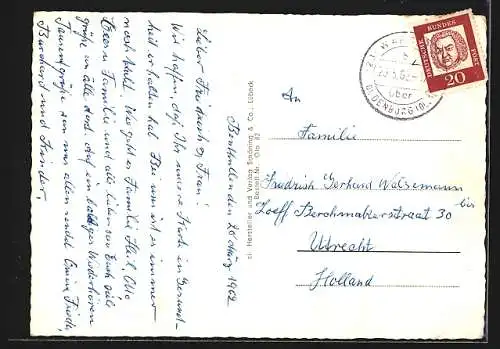 Benthullen den 26 März 1962
Lieber Friedrich u. Frau!
Wir hoffen, daß Ihr unsere Karte in Gesund-
heit erhalten habt. Bei uns ist es immer
noch kalt. Wie geht es Familie Karl, Otto
Euern Familie und alle, haben von Euch viele
grüße an alle dort. Auf ein baldiges Wiederhören
Tausend grüße von uns allen sendet Euch Frieda,
Burchard und Kinder,
cl. Hersteller und Verlag Schöning & Co., Lübeck
Bestell-Nr. Olo. 82
DEUTSCHE BUNDESPOST
20
über
OLDENBURG (OLDB)
An
Familie
Friedrich Gerhard Welsemann
Zoeff Berchmakerstraat 30 bis
Uttrecht
Holland